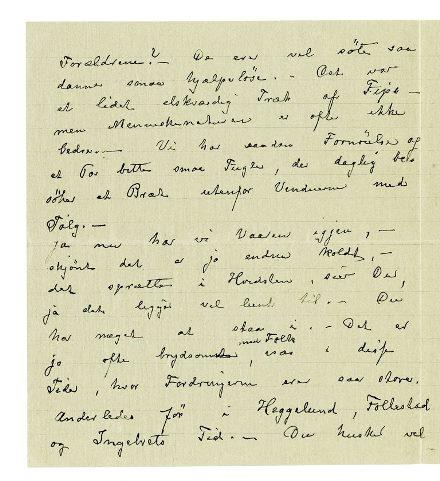 Forældrene? – De ere vel söte saa
danne smaa hjælpelöse. – Det var
et lidet elskværdig Træk af Fips –
men Menneskenaturen er ofte ikke
bedre. – Vi har saadan Fornöielse og
et Par bitte smaa Fugle, der daglig be
söker et Bræt utenfor Vinduerne med
Talg. –
ja nu har vi Vaaren igjen, –
skjönt det er jo endnu koldt, –
det spretter i siger Du,
ja det ligger vel lunt til. – Du
har noget at staa i. – Det er
jo ofte brydsomt med Folk, især i disse
Tider, hvor Fordringerne ere saa store.
Anderledes för i Heggelund, Follestad
og Ingebrets Tid. – Du husker vel